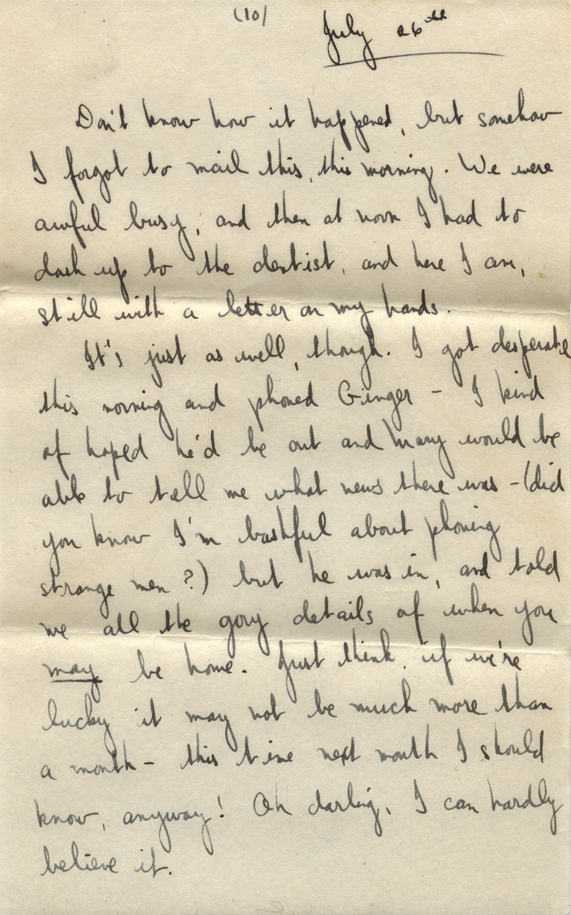 (10)
July 26th
Don't know how it happened, but somehow
I forgot to mail this, this morning. We were
awful busy, and then at noon I had to
dash up to the dentist, and here I am,
still with a letter on my hands.
It's just as well, though. I got desperate
this morning and phoned Ginger - I kind
of hoped he'd be out and Mary would be
able to tell me what news there was - (did
you know I'm bashful about phoning
strange men?) but he was in, and told
me all the gory details of when you
may be home. Just think, if we're
lucky it may not be much more than
a month - this time next month I should
know, anyway! Oh darling, I can hardly
believe it.